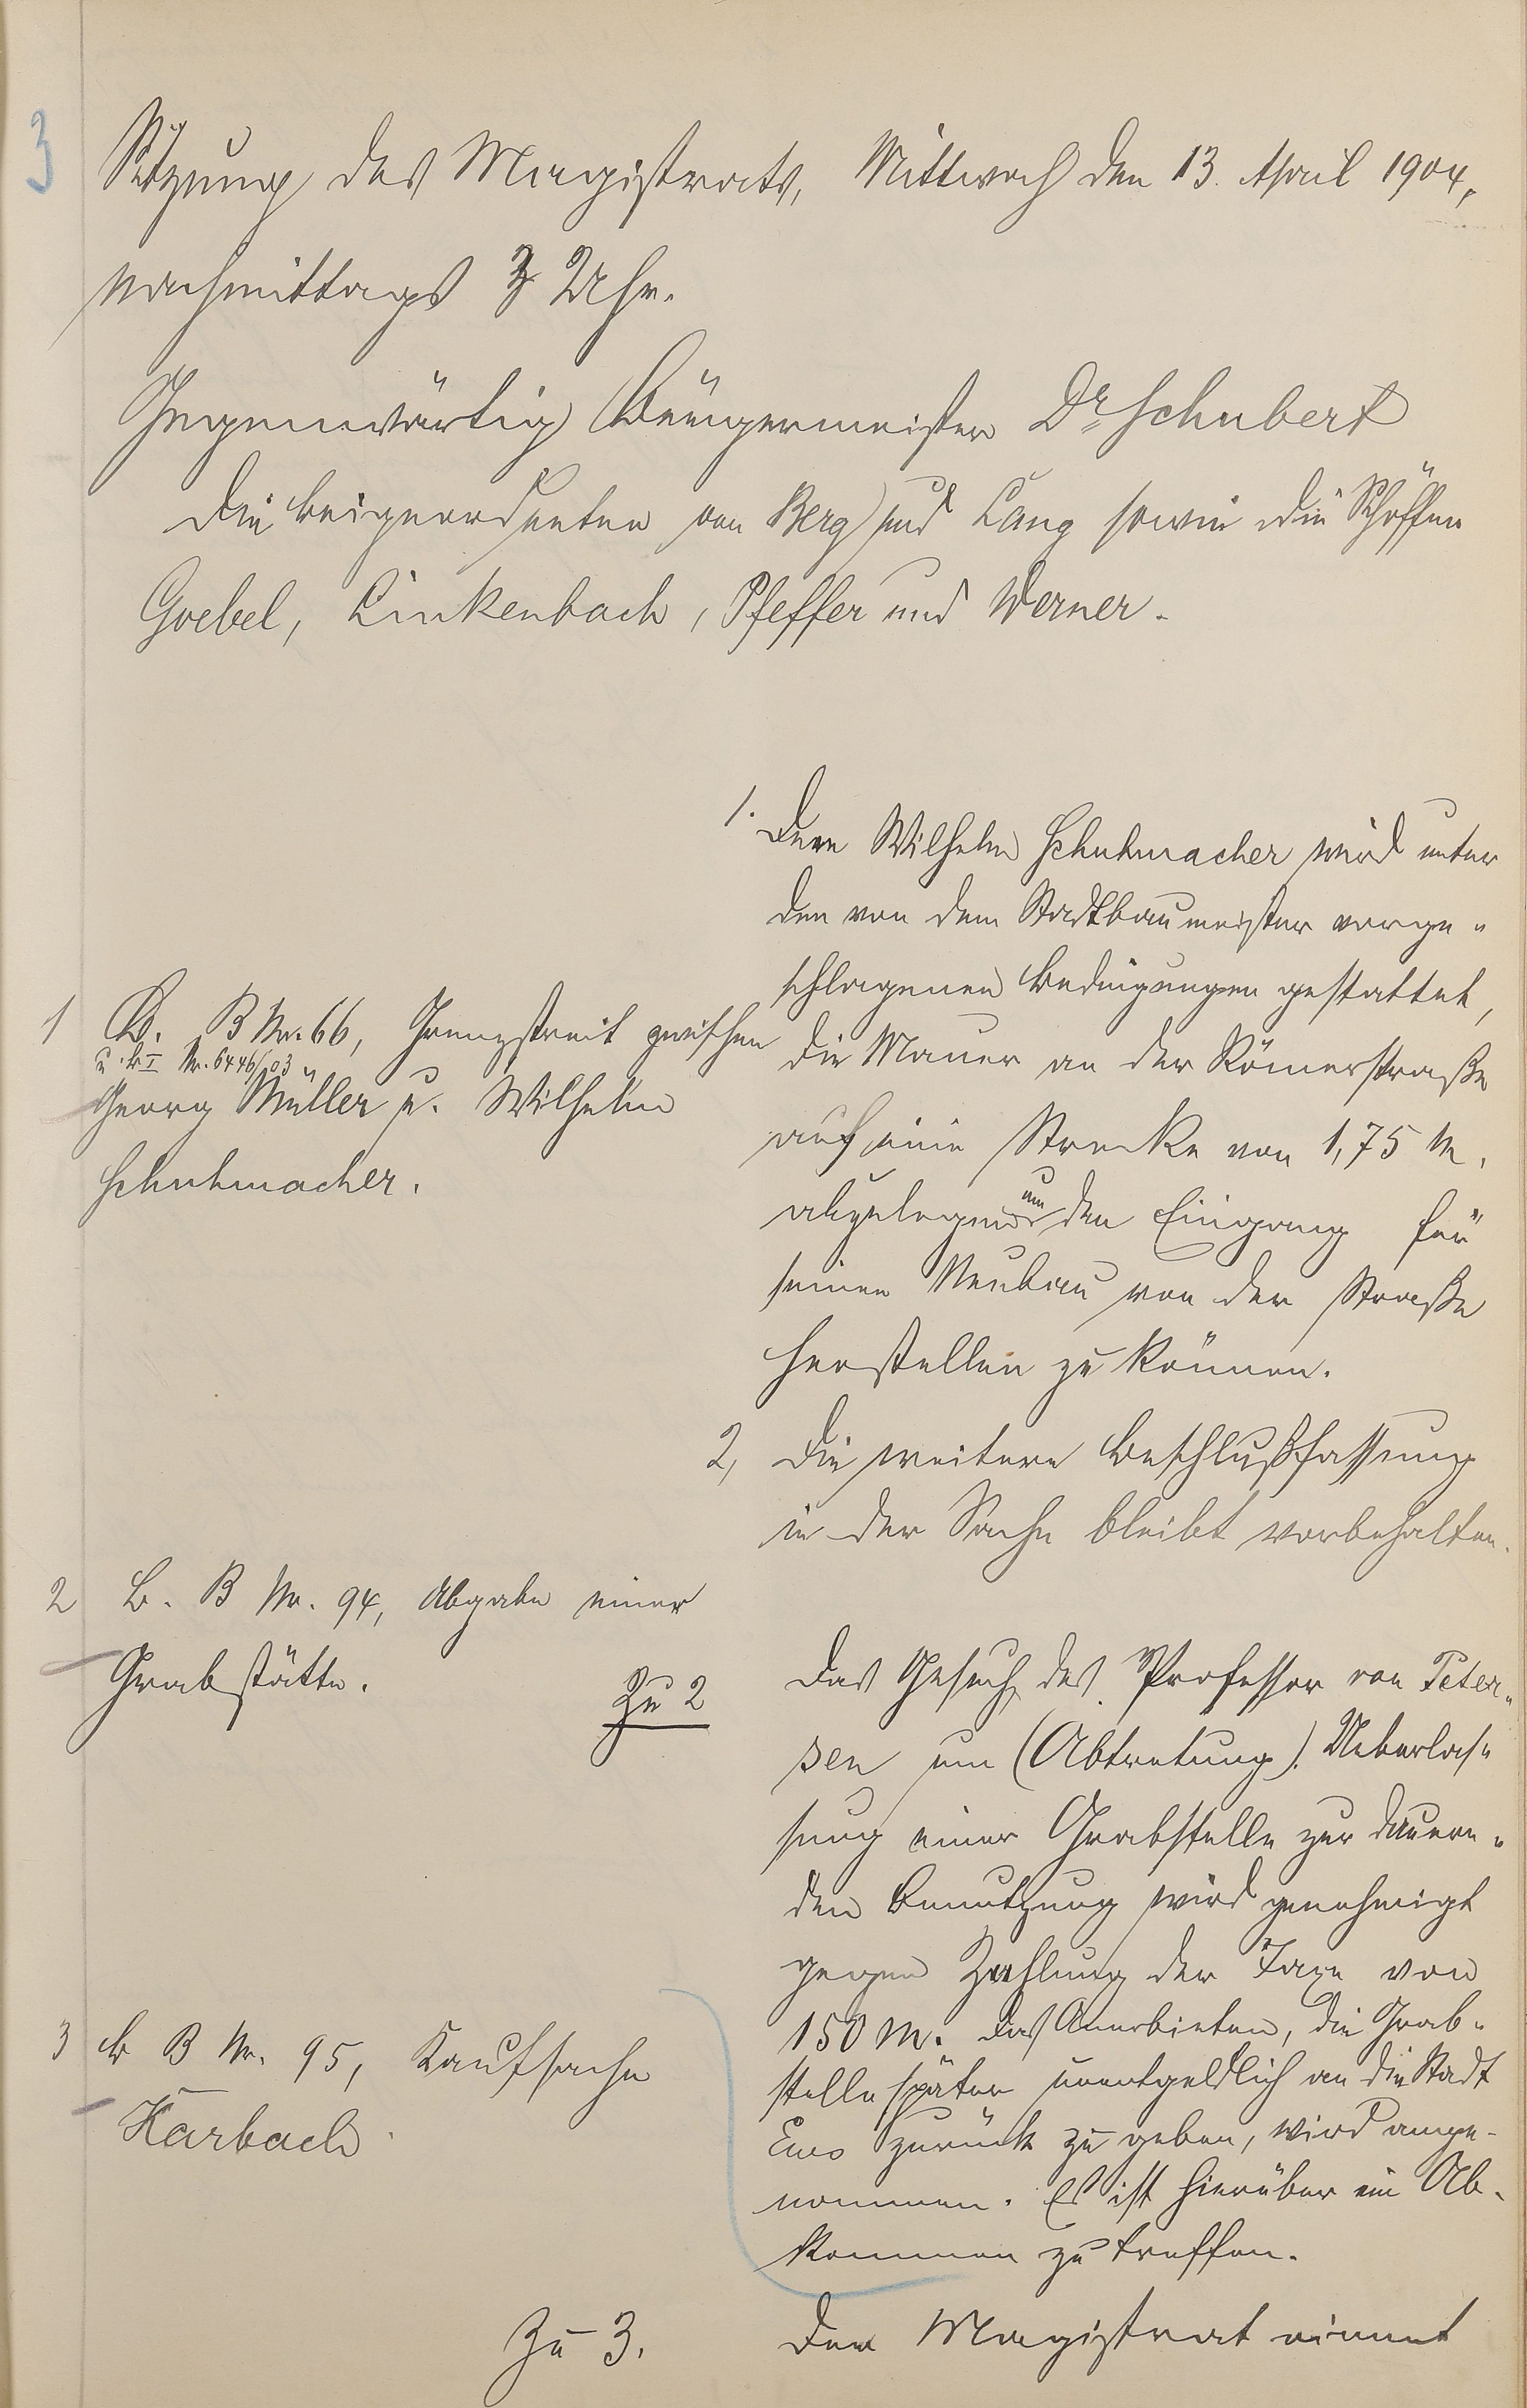 3
Sitzung des Magistrats, Mittwoch den 13. April 1904,
nachmittags 3 Uhr.
Gegenwärtig Bürgermeister Dr Schubert
Die Beigeordneten von Berg und Lang sowie die Schöffen
Goebel, Linkenbach, Pfeffer und Werner.
1 B. B Nr. 66, Grenzstreit zwischen
u. B I Nr. 6446/03
Georg Müller u. Wilhelm
Schuhmacher.
1. Dem Wilhelm Schuhmacher wird unter
den von dem Stadtbaumeister vorge-
schlagenen Bedingungen gestattet,
die Mauer an der Römerstraße
auf eine Strecke von 1,75 m,
abzulegen um den Eingang für
seinen Neubau von der Straße
herstellen zu können.
2, Die weitere Beschlußfassung
in der Sache bleibt vorbehalten.
2 B. B Nr. 94, Abgabe einer
Grabstätte.
Zu 2
Das Gesuch des Professor von Peter-
sen um (Abtretung) Ueberlas-
sung einer Grabstelle zur dauern-
den Benutzung wird genehmigt
gegen Zahlung der Taxe von
150 M. Das Anerbieten, die Grab-
stelle später unentgeldlich an die Stadt
Ems zurück zu geben, wird ange-
nommen. Es ist hierüber ein Ab-
kommen zu treffen.
3 B B Nr. 95, Kaufsache
Karbach
Zu 3.
Der Magistrat nimmt